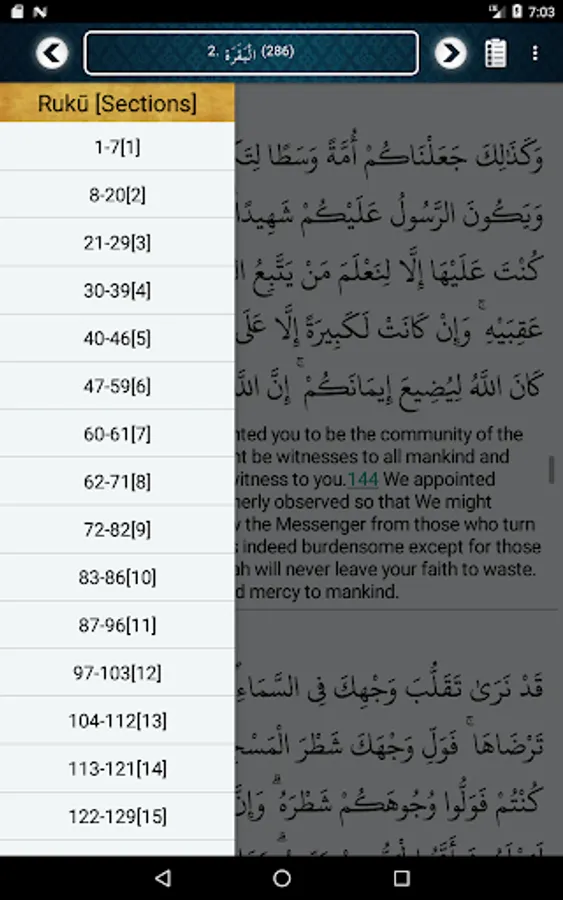 7:03
2. الْبَقَرَة (286)
Rukū [Sections]
1-7[1]
8-20[2]
21-29[3]
30-39[4]
40-46[5]
47-59[6]
60-61[7]
62-71[8]
72-82[9]
83-86[10]
87-96[11]
97-103[12]
104-112[13]
113-121[14]
122-129[15]
وَكَذَٰلِكَ جَعَلْنَاكُمْ أُمَّةً وَسَطًا
وَيَكُونَ الرَّسُولُ عَلَيْكُمْ شَهِيدًا
كُنْتَ عَلَيْهَا إِلَّا لِنَعْلَمَ مَنْ يَتَّبِعُ
عَقِبَيْهِ ۚ وَإِنْ كَانَتْ لَكَبِيرَةً إِلَّا عَلَى
كَانَ اللَّهُ لِيُضِيعَ إِيمَانَكُمْ ۚ إِنَّ
you to be the community of the
be witnesses to all mankind and
to you.144 We appointed
observed so that We might
the Messenger from those who turn
indeed burdensome except for those
will never leave your faith to waste.
mercy to mankind.
قَدْ نَرَىٰ تَقَلُّبَ وَجْهِكَ فِي السَّمَاءِ
تَرْضَاهَا ۚ فَوَلِّ وَجْهَكَ شَطْرَ
كُنْتُمْ فَوَلُّوا وُجُوهَكُمْ شَطْرَهُ ۗ وَإِنَّ